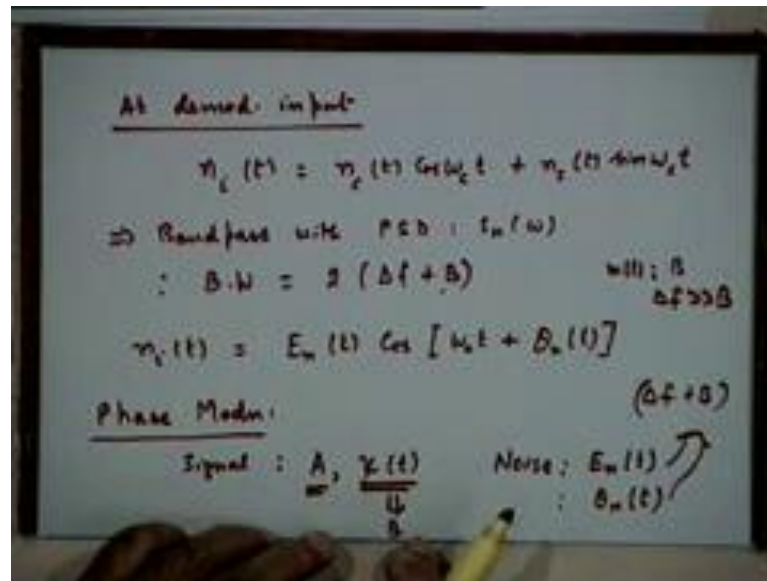 At demod. input
n_i(t) = n_c(t) Cos ω_c t + n_s(t) sin ω_c t
⇒ Bandpass with PSD : S_n(ω)
: B.W = 2 (Δf + B)
m(t) : B
Δf >> B
n_i(t) = E_n(t) Cos [ω_c t + θ_n(t)]
(Δf + B)
Phase Modn:
Signal : A, ψ(t) Noise : E_n(t)
⇓ : θ_n(t)
B